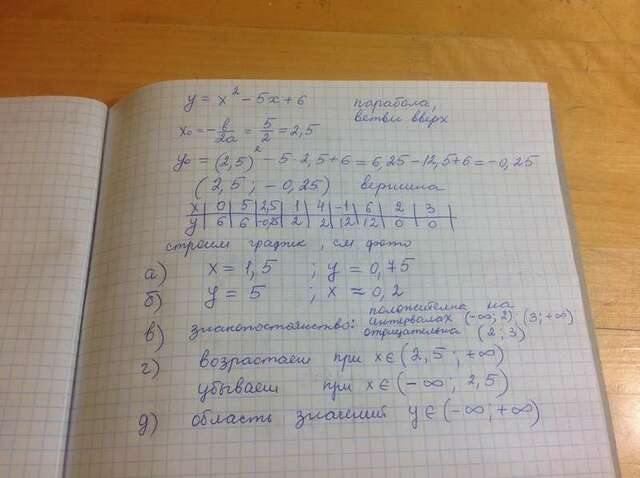 y = x² - 5x + 6 парабола,
ветви вверх
x₀ = -в/2a = 5/2 = 2,5
y₀ = (2,5)² - 5·2,5 + 6 = 6,25 - 12,5 + 6 = -0,25
(2,5; -0,25) вершина
x | 0 | 5 | 2,5 | 1 | 4 | -1 | 6 | 2 | 3 |
y | 6 | 6 | -0,25 | 2 | 2 | 12 | 12 | 0 | 0 |
строим график, см фото
а) x = 1,5 ; y = 0,75
б) y = 5 ; x ≈ 0,2
в) знакопостоянство: положительна на
интервалах (-∞; 2); (3; +∞)
отрицательна (2; 3)
г) возрастает при x ∈ (2,5; +∞)
убывает при x ∈ (-∞; 2,5)
д) область значений y ∈ (-∞; +∞)